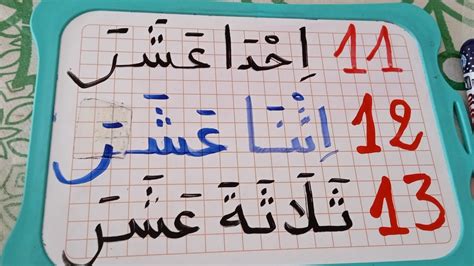 11 إِحْدَا عَشَرَ
12 إِثْنَا عَشَرَ
13 ثَلَاثَةَ عَشَرَ